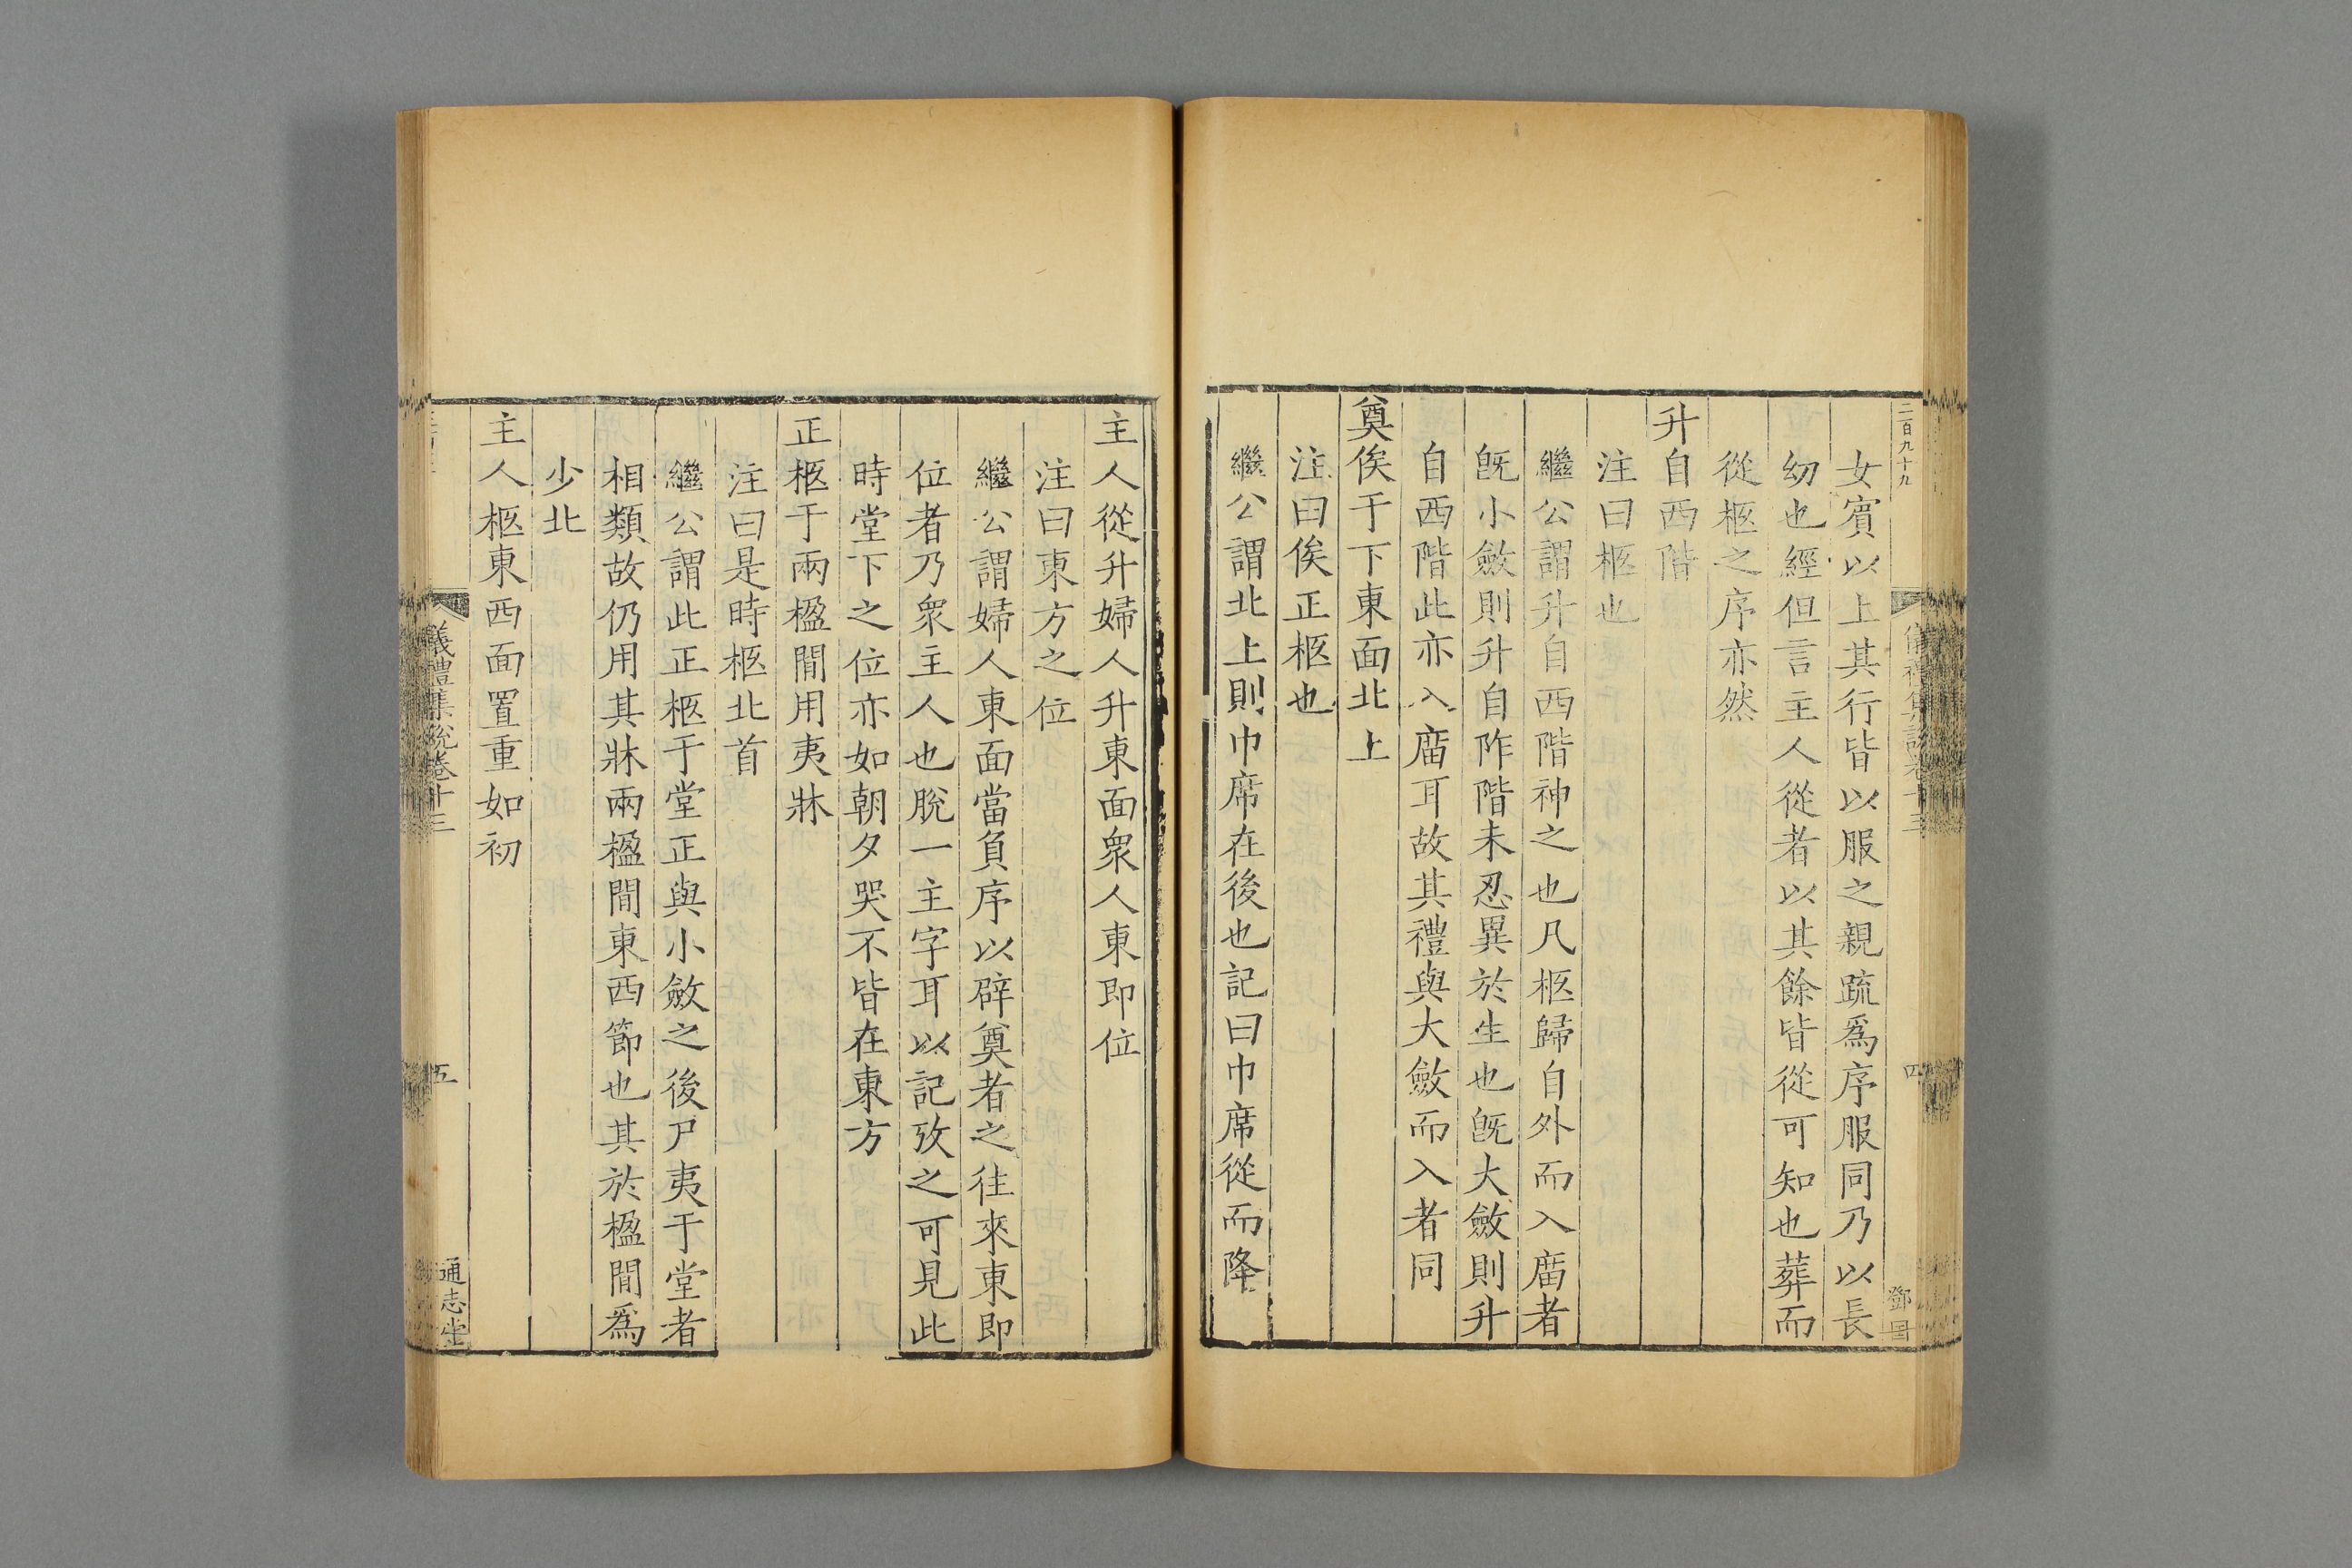 二百九十九
女賓以上其行皆以服之親疏爲序服同乃以長
幼也經但言主人從者以其餘皆從可知也葬而
從柩之序亦然
升自西階
注曰柩也
繼公謂升自西階神之也凡柩歸自外而入廟者
旣小斂則升自阼階未忍異於生也旣大斂則升
自西階此亦入廟耳故其禮與大斂而入者同
奠俟于下東面北上
注曰俟正柩也
繼公謂北上則巾席在後也記曰巾席從而降
主人從升婦人升東面衆人東即位
注曰東方之位
繼公謂婦人東面當負序以辟奠者之往來東即
位者乃衆主人也脫一主字耳以記攷之可見此
時堂下之位亦如朝夕哭不皆在東方
正柩于兩楹間用夷牀
注曰是時柩北首
繼公謂此正柩于堂正與小斂之後尸夷于堂者
相類故仍用其牀兩楹間東西節也其於楹間爲
少北
主人柩東西面置重如初
儀禮集說卷十三
五
通志堂